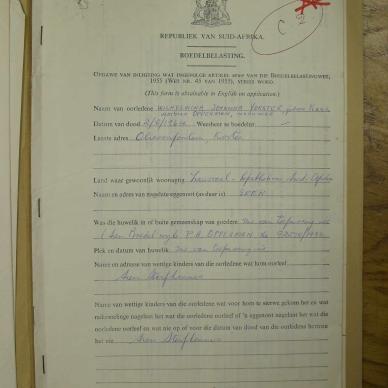 REPUBLIEK VAN SUID-AFRIKA.
BOEDELBELASTING.
OPGAWE VAN INLIGTING WAT INGEVOLGE ARTIKEL VAN DIE BOEDELBELASTINGWET,
1955 (WET NR. 45 VAN 1955), VEREIS WORD.
(This form is obtainable in English on application.)
Naam van oorledene WILHELMINA JOHANNA
OPPERMAN, WEDUWEE
Datum van dood
Laaste adres Olievenfontein, Koster
Land waar gewoonlik woonagtig Transvaal - Republiek van Suid-Afrika
Naam en adres van nagelate eggenoot (as daar is) GEEN
Was die huwelik in of buite gemeenskap van goedere? Nie van toepassing nie
Boedel wyle P.A. OPPERMAN
Plek en datum van huwelik Nie van toepassing nie
Name en adresse van wettige kinders van die oorledene wat hom oorleef
Sien Sterfkennis
Name van wettige kinders van die oorledene wat voor hom te sterwe gekom het en wat
nakomelinge nagelaat het wat die oorledene oorleef of 'n eggenoot nagelaat het wat die
oorledene oorleef en wat nie op of voor die datum van dood van die oorledene hertrou
het nie Sien Sterfkennis